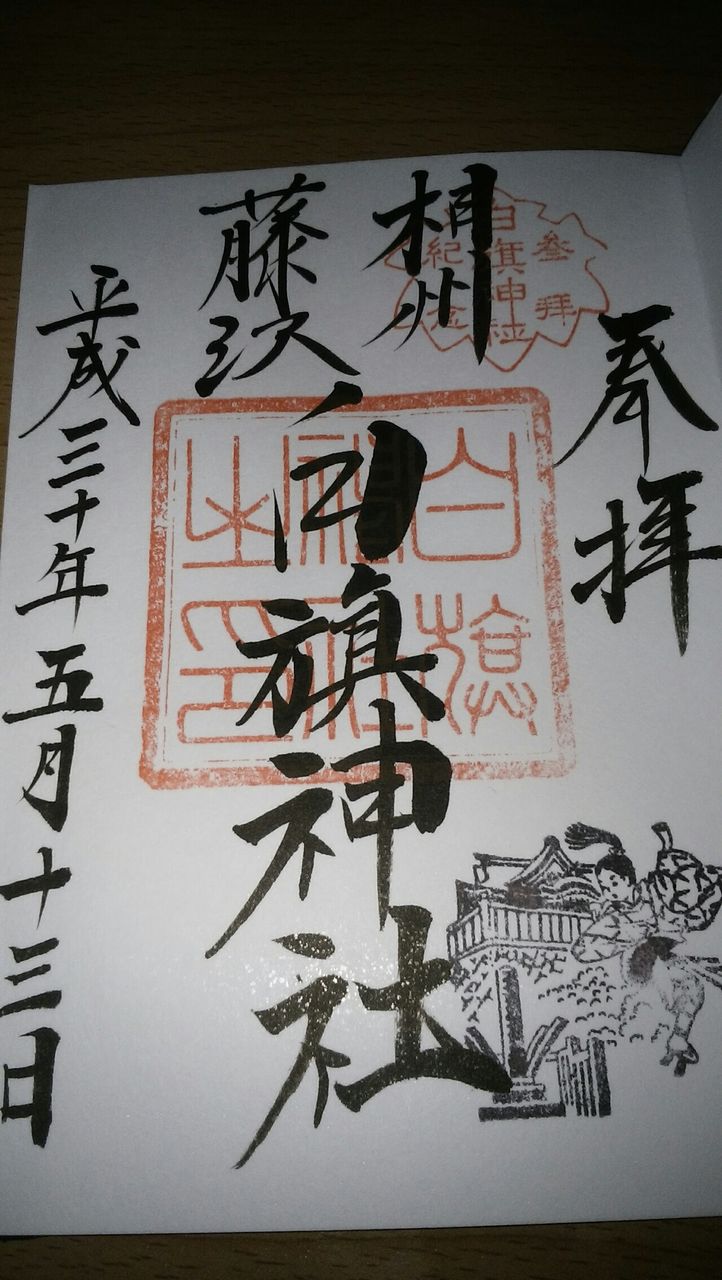 奉拝
参拝
白旗神社
紀念
相州
藤沢
白旗神社
白旗
神社
之印
平成三十年五月十三日